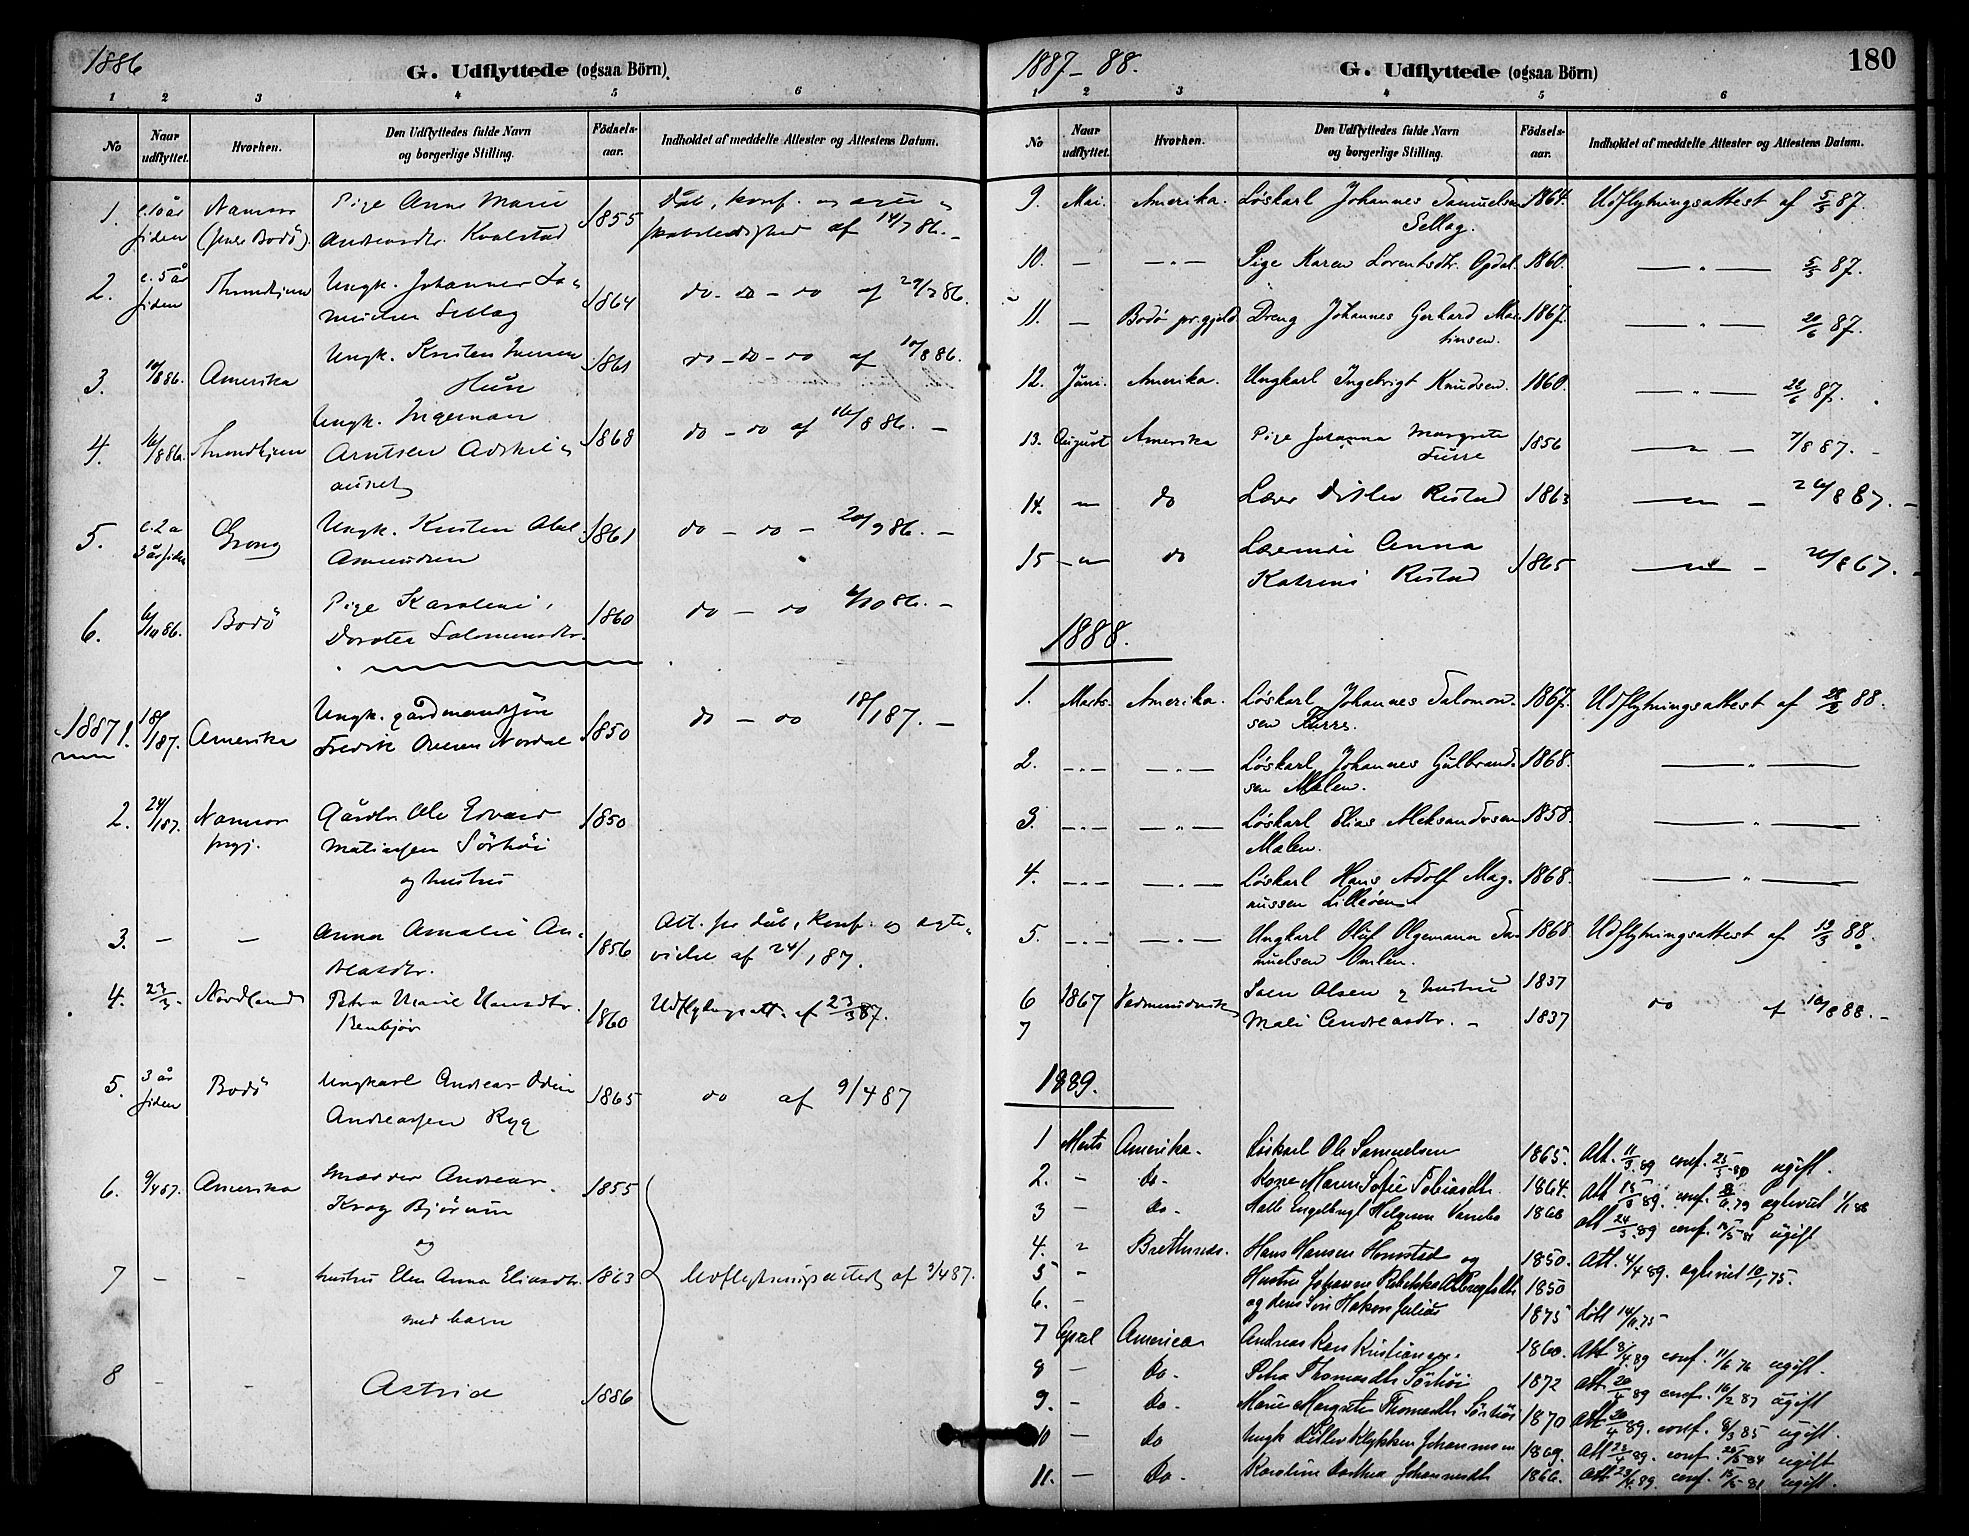 1886
G. Udflyttede (ogsaa Börn).
1 2 3 4 5 6
No
Naar udflyttet.
Hvorhen.
Den Udflyttedes fulde Navn
og borgerlige Stilling.
Födsels-
aar.
Indholdet af meddelte Attester og Attestens Datum.
1. c. 10 år Namsos Pige Anne Marie 1855 Dåb, konf. og
siden (Bodö). Andreasdtr. Kvalstad af 14/7 86. –
2. c. 5 år Trondhjem Ungk. Johannes 1864 do – do – do af 29/7 86.
siden Sellæg
3. 10/8 86. Amerika Ungk. Kristen Iversen 1861 do – do – do af 10/8 86.
Hun
4. 16/8 86. Trondhjem Ungk. Ingeman 1868 do – do af 16/8 86. –
Arntsen
5. c. 2 a Grong Ungk. Kristen 1861 do – do – 20/9 86. –
3 år siden Asmundsen
6. 6/10 86. Bodö Pige Karoline 1860 do – do 6/10 86. –
Dorotea Salomonsdtr.
1887 1. 18/1 87. Amerika Ungk. gårdmandssön 1850 do – do 18/1 87. –
Fredrik Nordal
2. 24/1 87. Namsos Gårdbr. Ole Edvard 1850
prgj. Matiassen Sörhöi
og hustru
3. – – Anna Amalie An- 1856 Att. for dåb, konf. og ægte-
dreasdtr. vielse af 24/1 87.
4. 23/3. Nordland Petra Marie Hansdtr. 1860 Udflytngsatt. af 23/3 87.
5. 3 år Bodö Ungkarl Andreas Odin 1865 do af 9/4 87
siden Andreassen Ryg
6. 9/4 87. Amerika Andreas 1855
Krog Bjørum
og
7 – – hustru Elen Anna Eliasdtr. 1863 Udflytningsattest af 9/4 87.
med barn
8 – – Astrid 1886
1887 – 88.
G. Udflyttede (ogsaa Börn)
180
1 2 3 4 5 6
No
Naar udflyttet.
Hvorhen.
Den Udflyttedes fulde Navn
og borgerlige Stilling.
Födsels-
aar.
Indholdet af meddelte Attester og Attestens Datum.
9. Mai. Amerika. Løskarl Johannes Samuelsen 1864. Udflytningsattest af 5/5 87.
Sellæg.
10. – – " – Pige Karen Lorentsdtr. Opdal. 1860. – " – 5/5 87.
11. – Bodø pr.gjeld. Dreng Johannes Gerhard Mar- 1867. – " – 20/6 87.
tinsen.
12. Juni. Amerika. Ungkarl Ingebrigt Knudsen. 1860. – " – 22/6 87.
13. August Amerika Pige Johanna Margrete 1856 – " – 7/8 87. –
Furre
14. – " do Lærer Ditlev Ristad 1863 – " – 26/8 87. –
15 – " do Lærerinde Anna 1865 – " – 26/8 87. –
Katrine Ristad
1888.
1. Marts. Amerika. Løskarl Johannes Salomon- 1867. Udflytningsattest af 28/2 88.
sen Furre.
2. – " – – " – Løskarl Johannes Gulbrand- 1868. – " –
sen Malen.
3. – " – – " – Løskarl Elias Aleksandersen 1858. – " –
Malen.
4. – " – – " – Løskarl Hans Adolf Mag- 1868. – " –
nussen Lilleøen.
5. – " – – " – Ungkarl Oluf Olgemann Sa- 1868 Udflytningsattest af 13/3 88.
muelsen Omlen.
6 1867 Olsen og hustru 1837 do af 10/8 88. –
7 Mali Andreasdtr. – 1837
1889.
1 Marts Amerika. Løskarl Ole Samuelsen 1865. Att. 11/3 89 conf. ugift.
2. – Do. Kone Maren Sofie Tobiasdtr. 1864. Att 15/3 89. conf. 79
3 – Do. Helgesen 1868 Att 24/3 89 conf. ugift
4. " Hans Hansen Homstad og 1850. Att. 4/4 89.
5 – Hustru Johanne 1850
6. – og deres Sön Hakon Julius 1875 Döbt 14/11 75
7 April America Andreas Kristiansen. 1860. Att 8/4 89 conf. 11/6 76 ugift.
8 – Do. Petra Thomasdtr Sörhöi 1872 Att 20/4 89 conf. 16/2 87 ugift
9. – Do. Marie Margrete Thomasdtr Sörhöi 1870 Att 20/4 89. conf. 8/3 85 ugift.
10 – Do Ungk Ditlev Klykken Johannesen 1869. Att 23/4 89. conf. 84 ugift
11. – Do. Karoline Dorthea Johannesdtr 1866. Att 23/4 89 conf. 81 ugift.